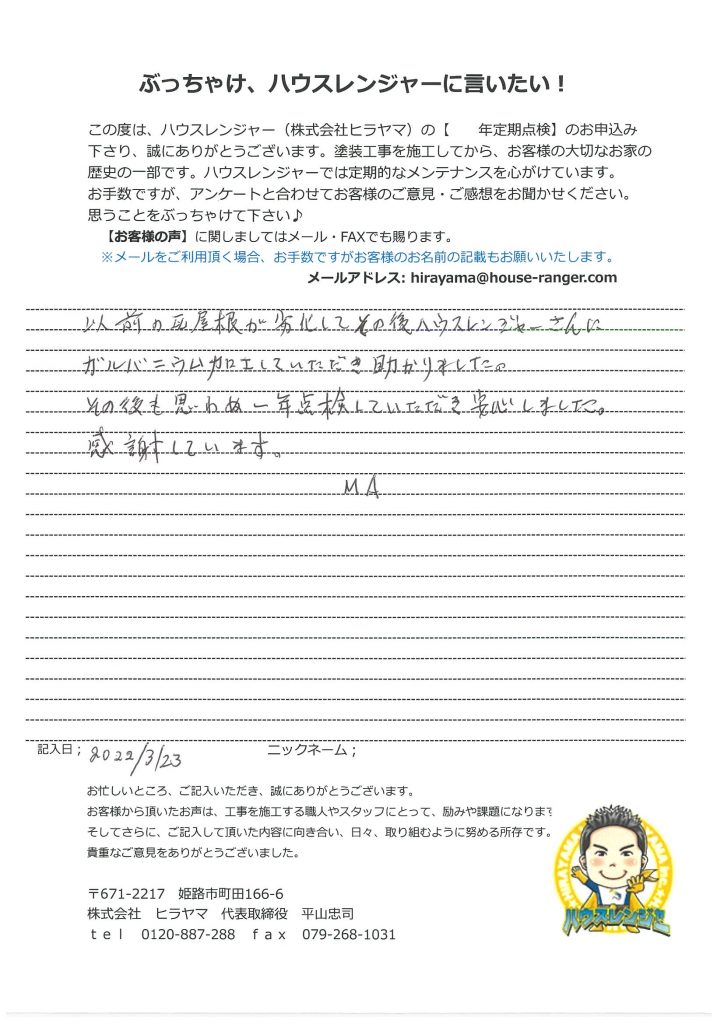 ぶっちゃけ、ハウスレンジャーに言いたい！
この度は、ハウスレンジャー（株式会社ヒラヤマ）の【　　年定期点検】のお申込み
下さり、誠にありがとうございます。塗装工事を施工してから、お客様の大切なお家の
歴史の一部です。ハウスレンジャーでは定期的なメンテナンスを心がけています。
お手数ですが、アンケートと合わせてお客様のご意見・ご感想をお聞かせください。
思うことをぶっちゃけて下さい♪
【お客様の声】に関しましてはメール・FAXでも賜ります。
※メールをご利用頂く場合、お手数ですがお客様のお名前の記載もお願いいたします。
メールアドレス: hirayama@house-ranger.com
以前の瓦屋根が劣化してその後ハウスレンジャーさんに
ガルバニウム加工していただき助かりました。
その後も思わぬ一年点検していただき安心しました。
感謝しています。
MA
記入日； 2022/3/23　ニックネーム；
お忙しいところ、ご記入いただき、誠にありがとうございます。
お客様から頂いたお声は、工事を施工する職人やスタッフにとって、励みや課題になります
そしてさらに、ご記入して頂いた内容に向き合い、日々、取り組むように努める所存です。
貴重なご意見をありがとうございました。
〒671-2217　姫路市町田166-6
株式会社　ヒラヤマ　代表取締役　平山忠司
ｔｅｌ　0120-887-288　ｆａｘ　079-268-1031
ハウスレンジャー